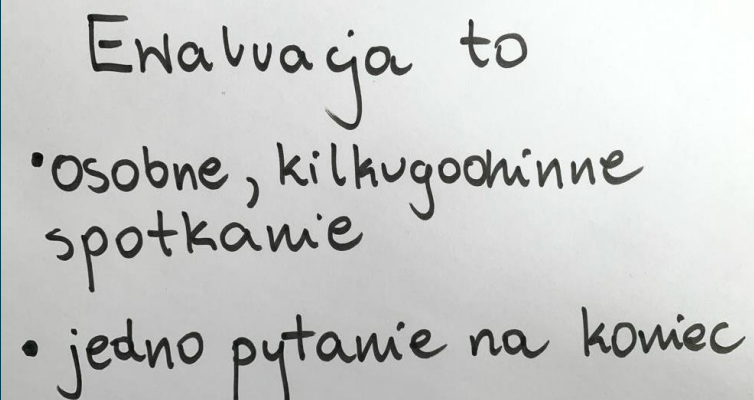 Ewaluacja to
• osobne, kilkugodzinne
spotkanie
• jedno pytanie na koniec